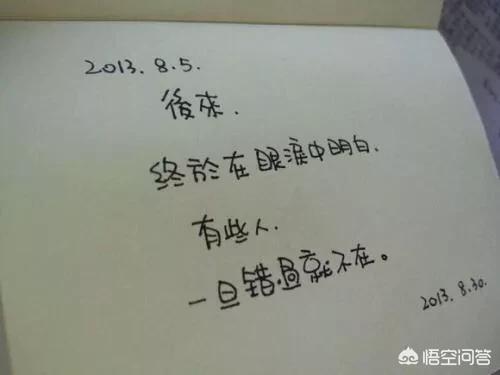 2013.8.5.
後來.
终於在眼淚中明白.
有些人.
一旦错過就不在。
2013.8.30.
悟空问答